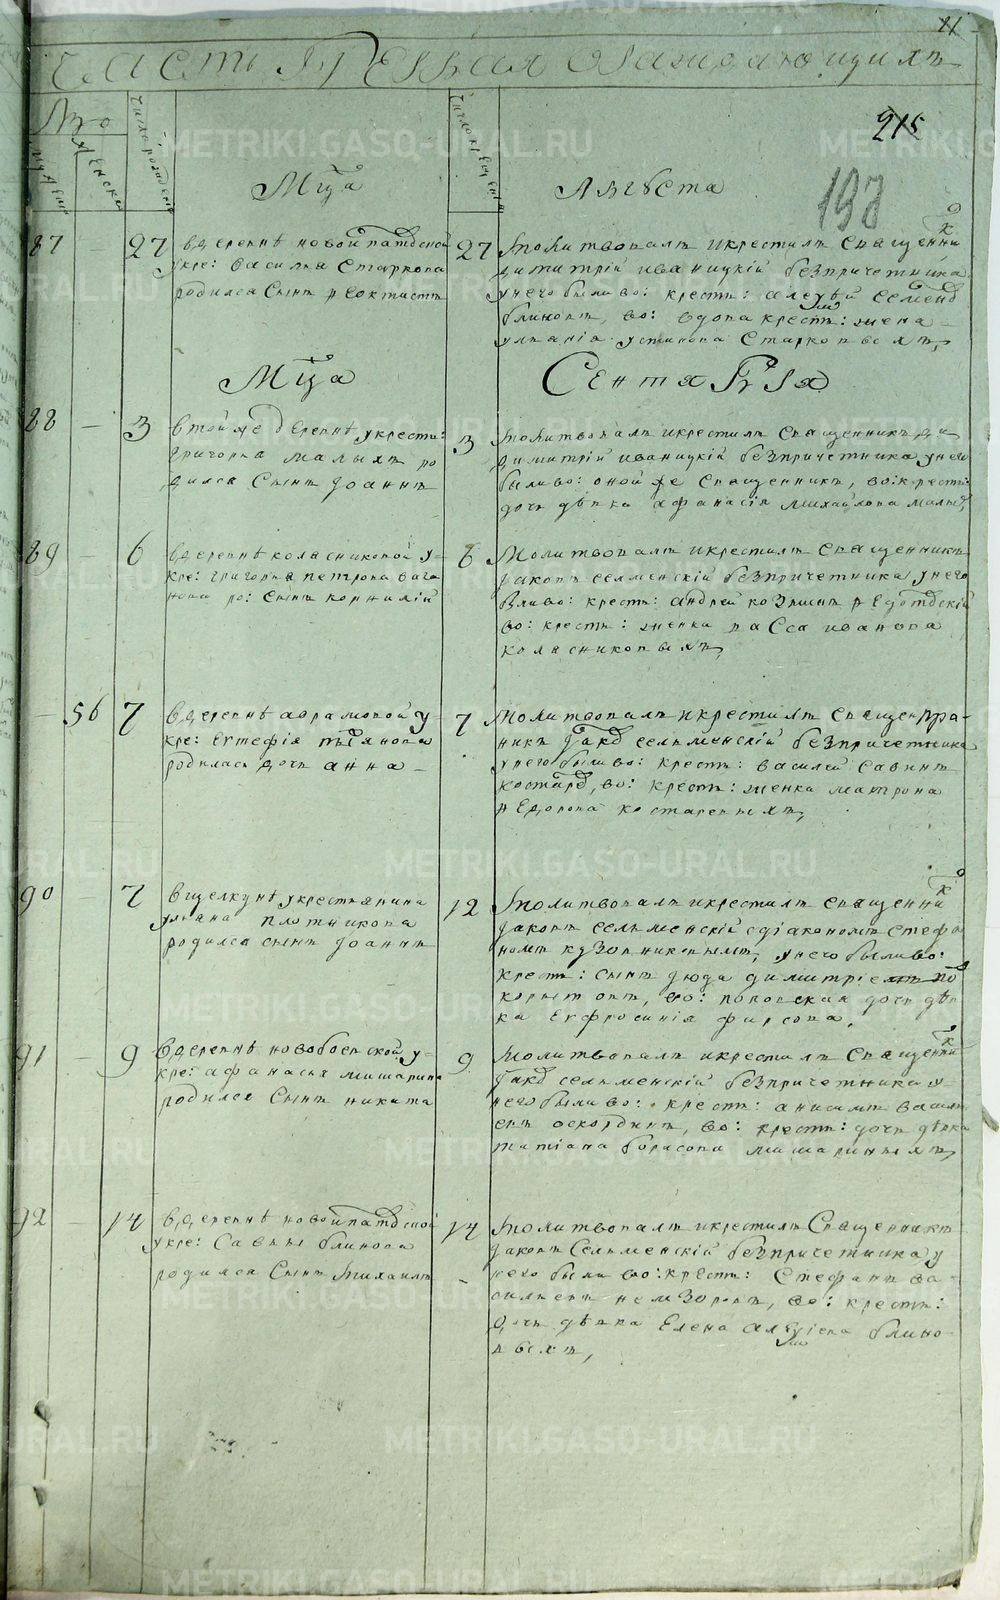 11
часть первая о раждающихся
No
мужеск
женска
число рождения
число крещения
215
198
Мца
Августа
87
27
в деревнѣ новоипатовской
укре: василья Старкова
родился Сынъ Ѳеоктистъ
27
Молитвовалъ и крестилъ Священникъ
димитрій иваницкій безпричетника
у него были во: крест: алеѯѣй Семенов
блиновъ, во: вдова крест: жена
улианія устинова Старковыхъ,
Мца
Сентября
88
3
в той же деревнѣ укрестн:
григорья малыхъ ро
дился Сынъ Іоаннъ
3
Молитвовалъ и крестилъ Священникъ ди
димитрій иваницкій безпричетника у него
были во: оной же Священникъ, во: крестн:
дочь дѣвка афанасія михайлова малых,
89
6
в деревнѣ колясниковой у
кре: григорья петрова вага
нова ро: Сынъ корнилій
6
Молитвовалъ и крестилъ Священникъ
Іаковъ селменскій безпричетника у него
были во: крест: андрей козминъ
во: крест: женка раиса иванова
колясниковыхъ,
56
7
в деревнѣ аврамовой у
кре: евтефія пьянова
родилась дочь анна
7
Молитвовалъ и крестилъ Священ
никъ Іаков селменскій безпричетника
у него были во: крест: василей савинъ
костарев, во: крест: женка матрона
Ѳедорова костаревыхъ,
90
7
в щелкунѣ укрестьянина
ульяна плотникова
родился сынъ Іоаннъ
12
Молитвовалъ и крестилъ Священникъ
Іаковъ селменскій с діакономъ стефа
номъ кузовниковымъ, у него были во:
крест: сынъ
во: поповская дочь дѣв
ка евфросинія фирсова,
91
9
в деревнѣ новобоевской у
кре: афанасья мишарина
родился Сынъ никита
9
Молитвовалъ и крестилъ Священник
Іаков селменскій безпричетника у
него были во: крест: анисимъ василь
евъ оскординъ, во: крест: дочь дѣвка
татіана борисова мишариныхъ,
92
14
в деревнѣ новоипатовской
укре: Саввы блинова
родился Сынъ Михаилъ
14
Молитвовалъ и крестилъ Священникъ
Іаковъ Селменскій безпричетника, у
него были во: крест: Стефанъ ва
сильевъ немзоровъ, во: крест:
дочь дѣвка Елена алеѯіева блино
выхъ,
METRIKI.GASO-URAL.RU